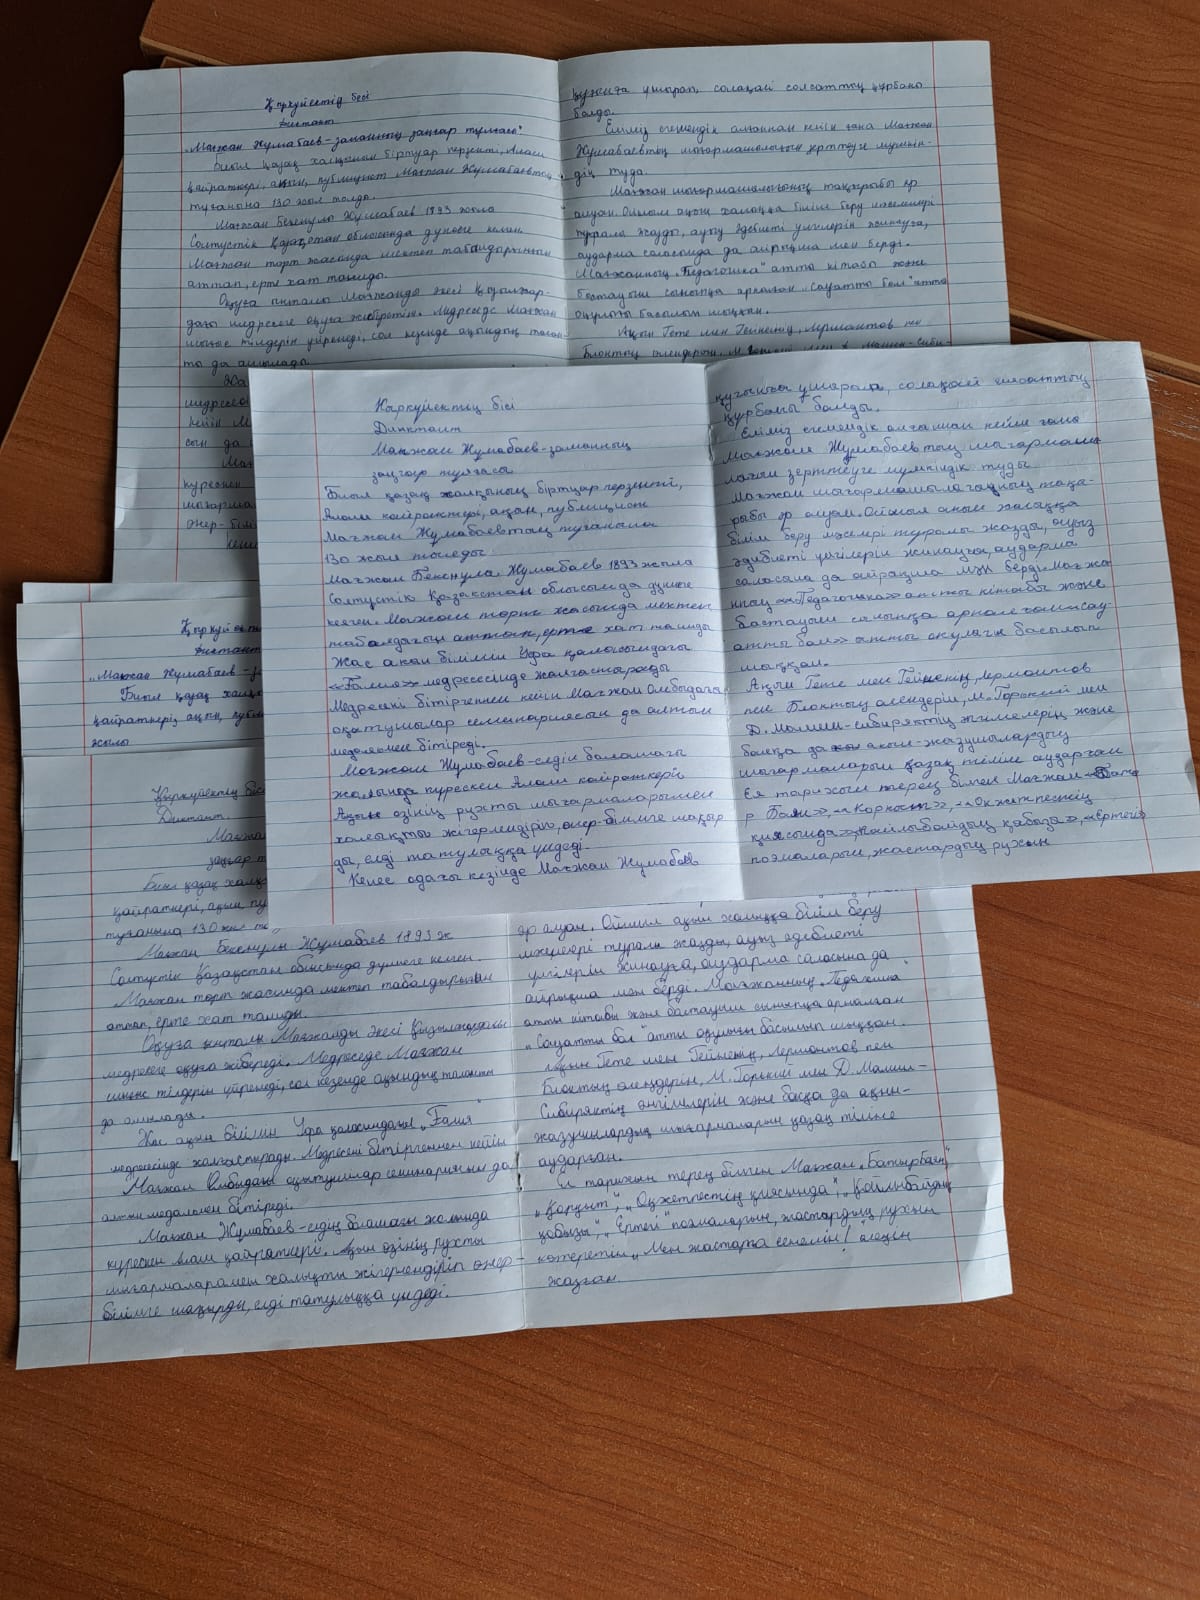 Қыркүйектің бесі
Диктант
"Мағжан Жұмабаев-заманның заңғар тұлғасы"
Биыл қазақ халқының біртуар перзенті, Алаш
қайраткері, ақын, публицист Мағжан Жұмабаевтың
туғанына 130 жыл толды.
Мағжан Бекенұлы Жұмабаев 1893 жылы
Солтүстік Қазақстан облысында дүниеге келген.
Мағжан төрт жасында мектеп табалдырығынан
аттап, ерте хат таниды.
Оқуға ынталы Мағжанды әкесі Қызылжар-
дағы медресеге оқуға жіберетін. Медреседе Мағжан
шығыс тілдерін үйренеді, сол кезеңде ақындық талан-
ты да ашылады.
Жа
медресес
кейін М
сын да
Мағ
күрескен
шығарма
өнер-білі
Кеңес
қуғында ұшырап, солақай саясаттың құрбаны
болды.
Еліміз егемендік алғаннан кейін ғана Мағжан
Жұмабаевтың шығармашылығын зерттеуге мүмкін-
дік туды.
Мағжан шығармашылығының тақырыбы әр
алуан. Ойшыл ақын халыққа білім беру мәселелері
туралы жазды, ауыз әдебиеті үлгілерін жинауға,
аударма саласында да айрықша мән берді.
Мағжанның "Педагогика" атты кітабы және
бастауыш сыныпқа арналған "Сауатты бол" атты
оқулығы басылып шыққан.
Ақын Гете мен Гейненің, Лермонтов пен
Блоктың өлеңдерін, М. Горький мен Д. Мамин-Сиби-
Қыркүйектің бесі
Диктант
Мағжан Жұмабаев-заманның
заңғар тұлғасы
Биыл қазақ халқының біртуар перзенті,
Алаш кайраткері, ақан, публицист
Мағжан Жұмабаевтаң туғанына
130 жыл толеды.
Мағжан Бекенула Жұмабаев 1893 жыла
Солтүстік Қазакстан облысында дүниеге
келген. Мағжан төрт жасында мектеп
табалдағын аттап, ерте хат таниды
Жас акан білімін Уфа қаласындағы
«Ғалия» медресесінде жалғастырады
Медресені бітіргеннен кейін Мағжан Омбыдағы
оқатушылар семинариясын да алтын
медалмен бітіреді.
Мағжан Жұмабаев-елдің болашағы
жолында күрескен Алаш кайраткері,
Ақын өзінің рухты шығармаларымен
халықты жігерлендіріп, өнер-білімге шақыр
ды, елді татулыққа үндеді.
Кеңес одағы кезінде Мағжан Жұмабаев
қуғынға ұшырап, солақай саясаттың
құрбаны болды.
Еліміз егемендік алғаннан кейін ғана
Мағжан Жұмабаевтың шығармаш
лағын зерттеуге мүмкіндік туды
Мағжан шығармашылағының тақа-
рыбы әр алуан. Ойшыл ақын халаққа
білім беру мәселері туралы жазды, ауыз
әдибиеті үлгілерін жинауға, аударма
саласана да айрақша мән берді. Мағжа
нның «Педагогика» атты кітабы және
бастауыш салынқа арналғанаСау-
атты бол» атты окулағы басылып
шыққан.
Ақын Гете мен Гейненің, Лермонтов
пен Блоктың өлендерін, М. Горький мен
Д. Мамин-сибиряктің әңгімелерің және
басқа да ақын-жазушылардың
шығармаларын қазақ тіліне аударған
Ел тарихын терең білген Мағжан «Баты
р Баян», «Корқыт», «Окжетпестің
қиясында», Койлыбайдың қабыза», «Ертегі»
поэмаларын, жастардың рухын
Қыркүйектің
Диктант
"Мағжан Жұмабаев-за
Биыл қазақ халқ
қайраткері, ақын, публи
жылы
Қыркүйектің бесі
Диктант.
Мағжан
заңғар т
Биыл қазақ халқ
қайраткері, ақын, пу
туғанына 130 жыл то
Мағжан Бекенұлы Жұмабаев 1893 ж
Солтүстік Қазақстан облысында дүниеге келген.
Мағжан төрт жасында мектеп табалдырығын
аттап, ерте хат таниды.
Оқуға ынталы Мағжанды әкесі Қызылжардағы
медресеге оқуға жібереді. Медреседе Мағжан
шығыс тілдерін үйренеді, сол кезеңде ақындық таланты
да ашылады.
Жас ақын білімін Уфа қаласындағы "Ғалия"
медресесінде жалғастырады. Медресені бітіргеннен кейін
Мағжан Омбыдағы оқытушылар семинариясын да
алтын медальмен бітіреді.
Мағжан Жұмабаев-елдің болашағы жолында
күрескен алаш қайраткері. Ақын өзінің рухты
шығармаларымен халықты жігерлендіріп өнер-
білімге шақырды, елді татулыққа үндеді.
әр алуан. Ойшыл ақын халыққа білім беру
мәселері туралы жазды, ауыз әдебиеті
үлгілерін жинауға, аударма саласына да
айрықша мән берді. Мағжанның "Педагогика"
атты кітабы және бастауыш сыныпқа арналған
"Сауатты бол" атты оқулығы басылып шыққан.
Ақын Гете мен Гейненің, Лермонтов пен
Блоктың өлеңдерін, М. Горький мен Д. Мамин-
Сибиряктің әңгімелерін және басқа да ақын-
жазушылардың шығармаларын қазақ тіліне
аударған.
Ел тарихын терең білген Мағжан "Батыр Баян",
"Қорқыт", "Оқжетпестің қиясында", "Қойлыбайдың
қобызы", "Ертегі" поэмаларын, жастардың рухын
көтеретін "Мен жастарға сенемін!" өлеңін
жазған.